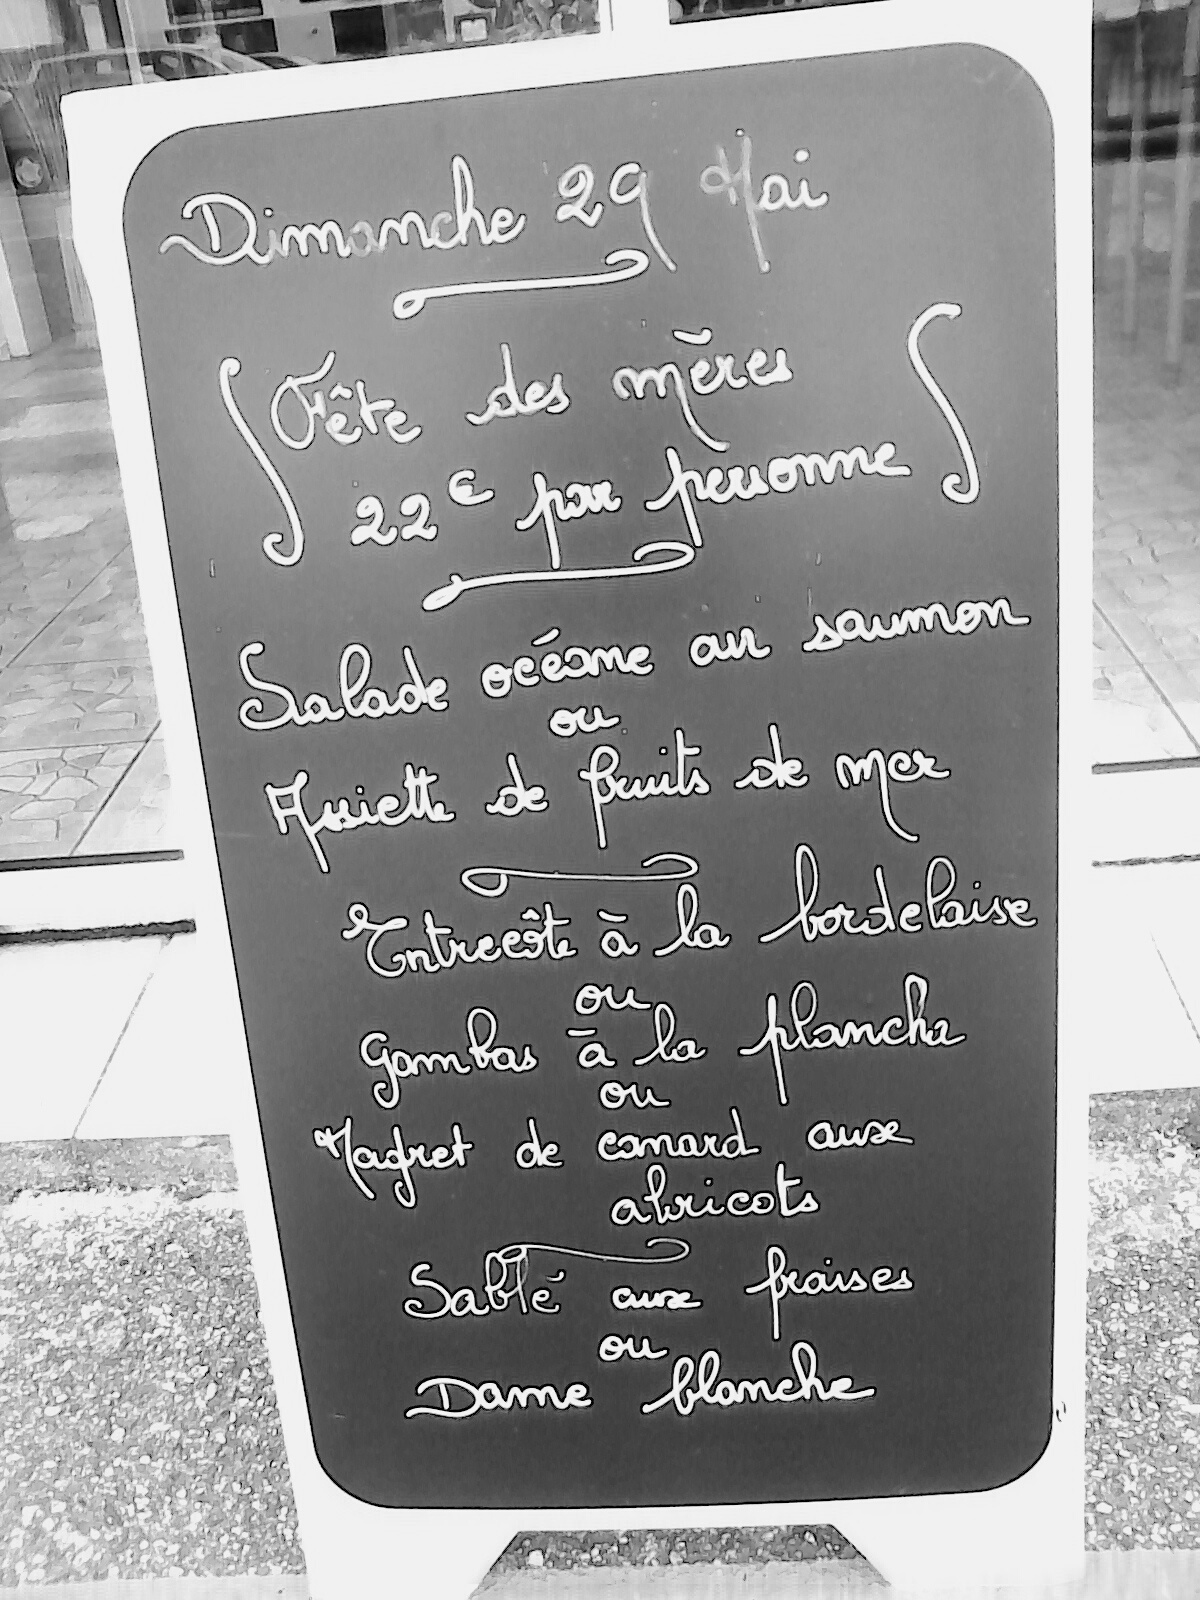 Dimanche 29 Mai
Fête des mères
22€ par personne
Salade océane au saumon
ou
Assiette de fruits de mer
Entrecôte à la bordelaise
ou
Gambas à la plancha
ou
Magret de canard aux
abricots
Sablé aux fraises
ou
Dame blanche